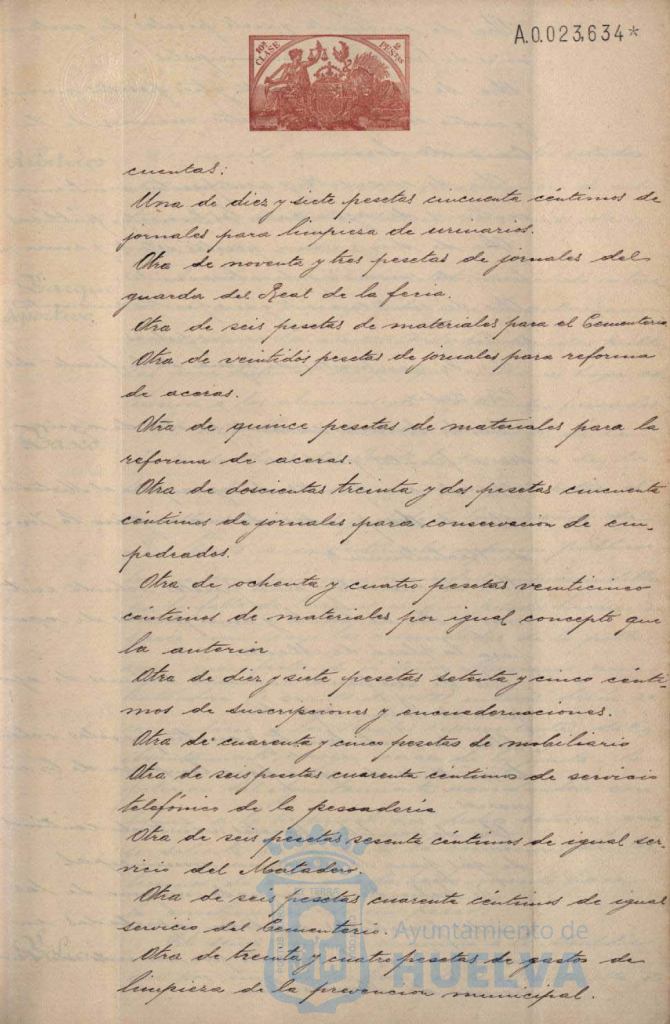 A.0.023,634*
10ª CLASE
2 PESETAS
cuentas:
Una de diez y siete pesetas cincuenta céntimos de
jornales para limpiesa de urinarios.
Otra de noventa y tres pesetas de jornales del
guarda del Real de la feria.
Otra de seis pesetas de materiales para el Cementerio
Otra de veintidós pesetas de jornales para reforma
de aceras.
Otra de quince pesetas de materiales para la
reforma de aceras.
Otra de doscientas treinta y dos pesetas cincuenta
céntimos de jornales para conservacion de em-
pedrados.
Otra de ochenta y cuatro pesetas veinticinco
céntimos de materiales por igual concepto que
la anterior
Otra de diez y siete pesetas setenta y cinco cénti-
mos de suscripciones y encuadernaciones.
Otra de cuarenta y cinco pesetas de mobiliario
Otra de seis pesetas cuarenta céntimos de servicio
telefónico de la pescadería
Otra de seis pesetas sesenta céntimos de igual ser-
vicio del Matadero.
Otra de seis pesetas cuarenta céntimos de igual
servicio del Cementerio.
Otra de treinta y cuatro pesetas de gastos de
limpieza de la prevencion municipal.
Ayuntamiento de
HUELVA